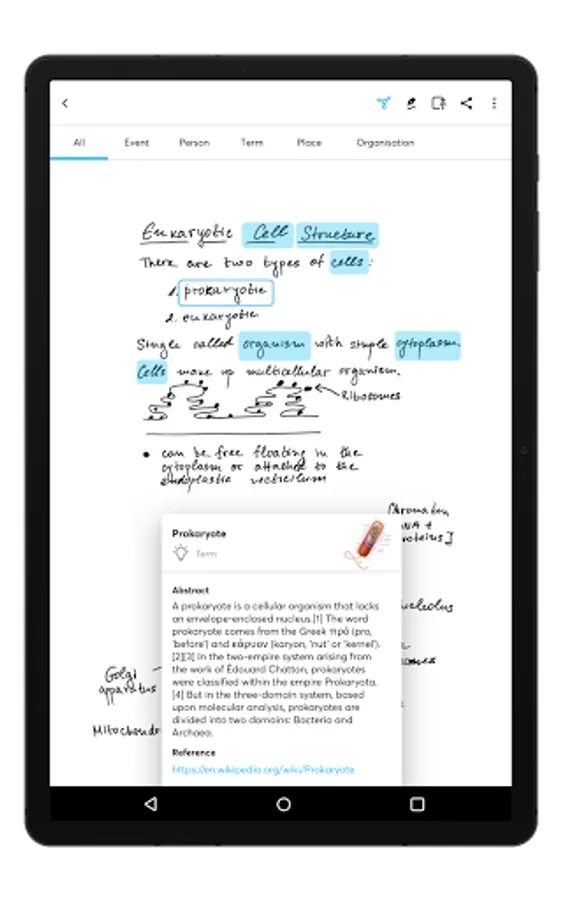 All Event Person Term Place Organisation
Eukaryotic Cell Structure
There are two types of cells:
1. prokaryotic
2. eukaryotic
Single called organism with simple cytoplasm.
Cells make up multicellular organism.
Ribosomes
• can be free floating in the
cytoplasm or attached to the
endoplastic
Chromatin
Prokaryote
Term
Abstract
A prokaryote is a cellular organism that lacks
an envelope-enclosed nucleus.[1] The word
prokaryote comes from the Greek πρό (pro,
'before') and κάρυον (karyon, 'nut' or 'kernel').
[2][3] In the two-empire system arising from
the work of Édouard Chatton, prokaryotes
were classified within the empire Prokaryota.
[4] But in the three-domain system, based
upon molecular analysis, prokaryotes are
divided into two domains: Bacteria and
Archaea.
Reference
https://en.wikipedia.org/wiki/Prokaryote
Golgi
apparatus
Mitochondr